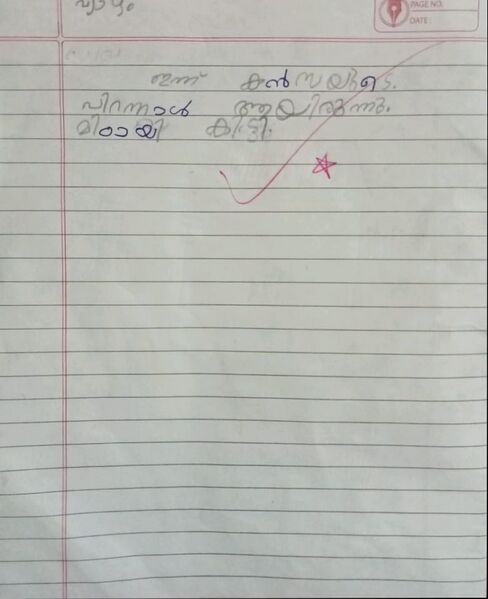 വ്യാഴം
PAGE NO.
DATE:
ഇന്ന് കൻസയുടെ.
പിറന്നാൾ ആയിരുന്നു.
മിഠായി കിട്ടി.